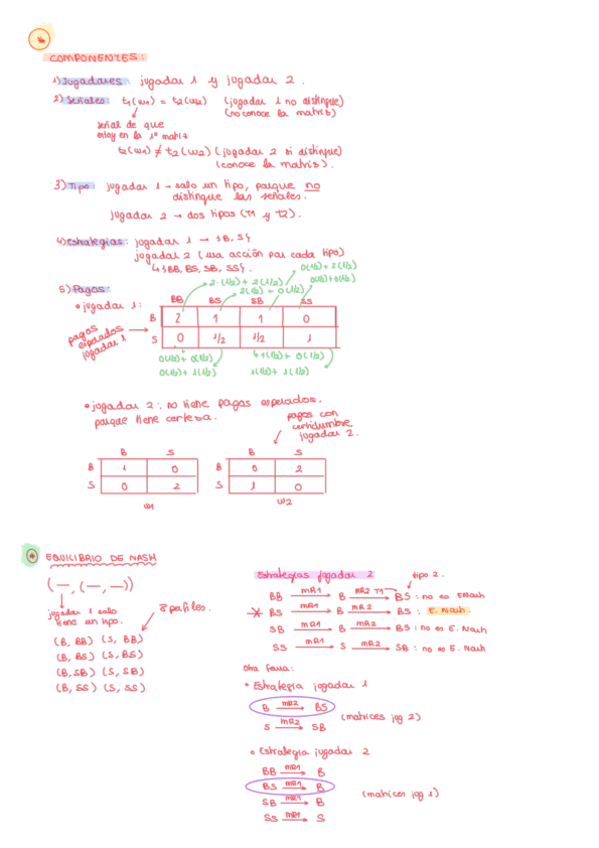 COMPONENTES:
1) Jugadores: jugador 1 y jugador 2.
2) Señales: t1(w1) = t2(w2) (jugador 1 no distingue)
(no conoce la matriz)
señal de que
estoy en la 1ª matriz
t2(w1) ≠ t2(w2) (jugador 2 si distingue)
(conoce la matriz).
3) Tipo: jugador 1 → solo un tipo, porque no
distingue las señales.
jugador 2 → dos tipos (T1 y T2).
4) Estrategias: jugador 1 → {B, S}
jugador 2 (una acción por cada tipo)
↳ {BB, BS, SB, SS}.
0(1/2) + 2(1/2)
2·(1/2) + 2(1/2)
2(1/2) + 0(1/2)
0(1/2) + 0(1/2)
5) Pagos:
• jugador 1:
BB BS SB SS
B 2 1 1 0
S 0 1/2 1/2 1
pagos
esperados
jugador 1
0(1/2) + 0(1/2)
1(1/2) + 0(1/2)
0(1/2) + 1(1/2)
1(1/2) + 1(1/2)
• jugador 2: no tiene pagos esperados.
porque tiene certeza.
pagos con
certidumbre
jugador 2.
B S
B 1 0
S 0 2
w1
B S
B 0 2
S 1 0
w2
EQUILIBRIO DE NASH
(—, (—, —))
jugador 1 solo
tiene un tipo.
8 perfiles.
(B, BB) (S, BB)
(B, BS) (S, BS)
(B, SB) (S, SB)
(B, SS) (S, SS)
Estrategias jugador 2
tipo 2.
BB MR1→ B MR2 T1→ BS: no es E.Nash
BS MR1→ B MR2→ BS: E. Nash.
SB MR1→ B MR2→ BS: no es E. Nash
SS MR1→ S MR2→ SB: no es E. Nash
Otra forma:
• Estrategia jugador 1
B MR2→ BS
(matrices jog 2)
S MR2→ SB
• Estrategia jugador 2
BB MR1→ B
BS MR1→ B
(matrices jog 1)
SB MR1→ B
SS MR1→ S